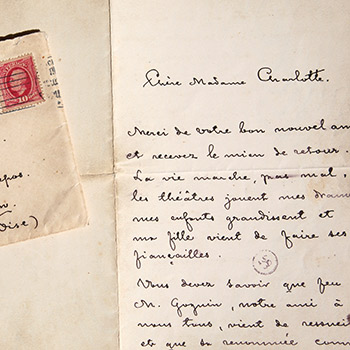 10
pos.
n.
Oise)
Chère Madame Charlotte.
Merci de votre bon nouvel an
et recevez le mien de retour.
La vie marche, pas mal,
les théâtres jouent mes drame
mes enfants grandissent et
ma fille vient de faire ses
fiançailles.
Vous devez savoir que feu
M. Guguin, notre ami à
nous tous, vient de ressuci
et que sa renommée comm